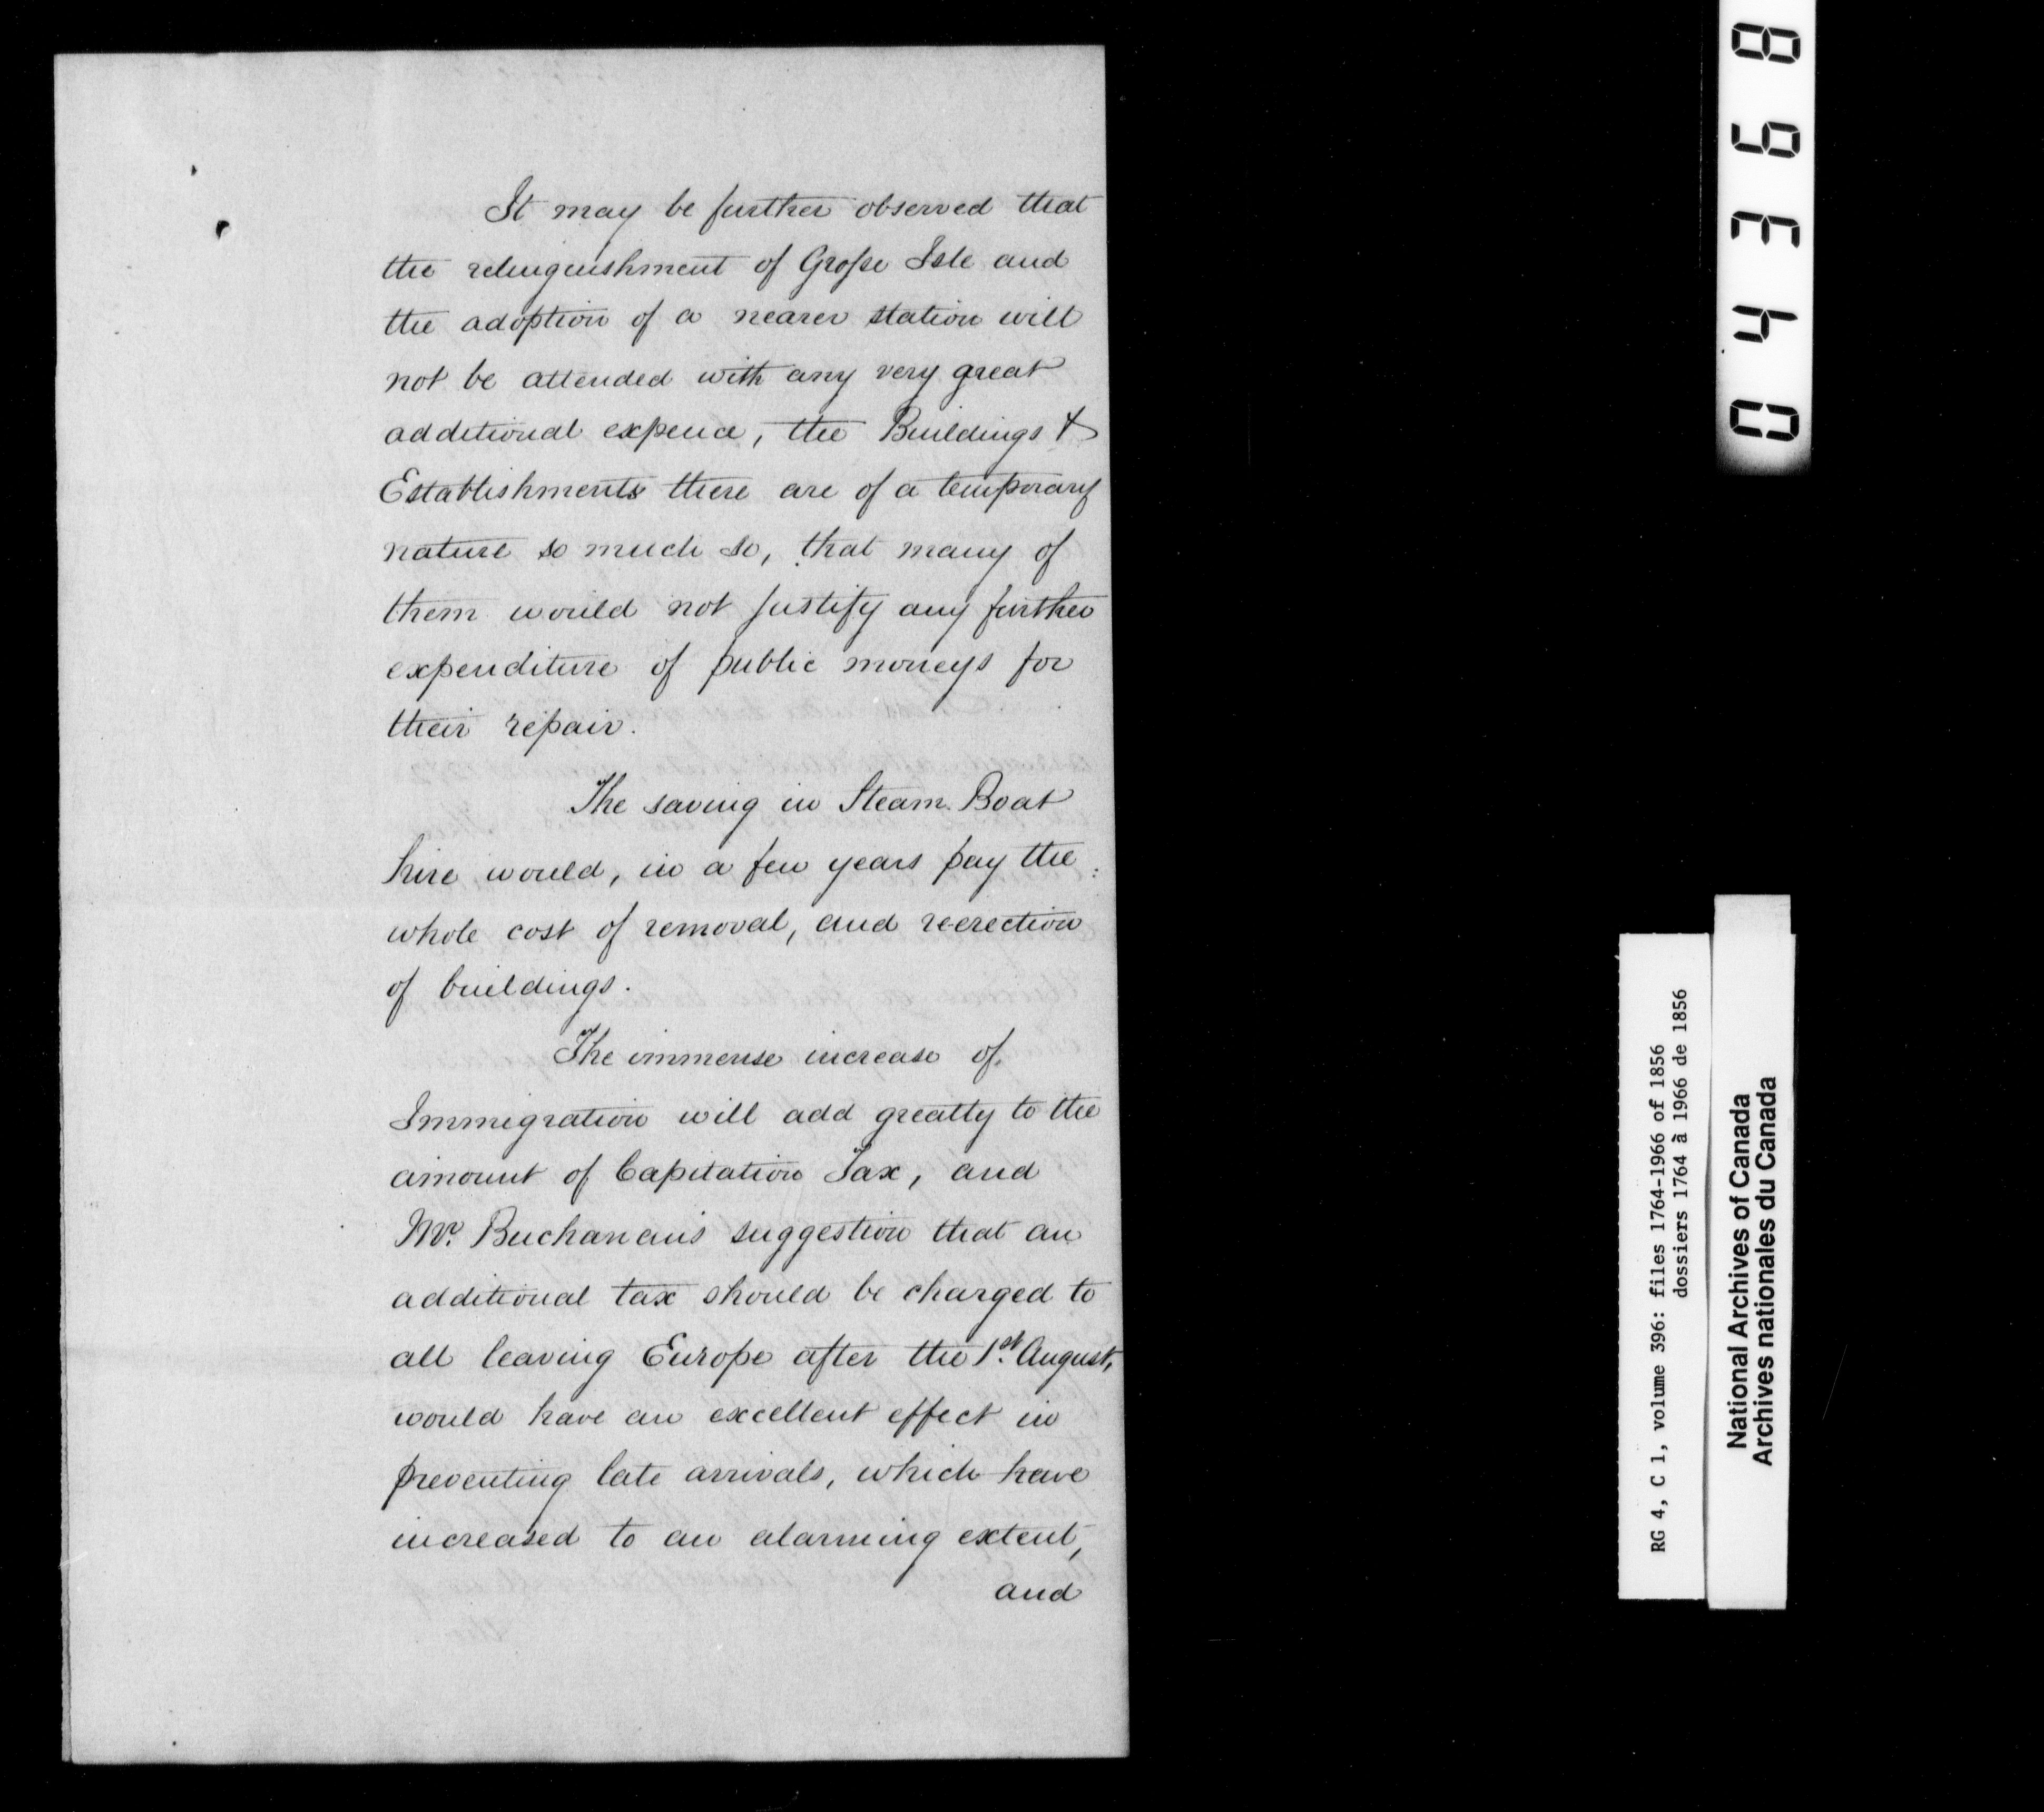 It may be further observed that
the relinquishment of Grosse Isle and
the adoption of a nearer station will
not be attended with any very great
additional expence, the Buildings &
Establishments there are of a temporary
nature so much so, that many of
them would not justify any further
expenditure of public moneys for
their repair.
The saving in Steam Boat
hire would, in a few years pay the
whole cost of removal, and re-erection
of buildings.
The immense increase of
Immigration will add greatly to the
amount of Capitation Tax, and
Mr. Buchanan's suggestion that an
additional tax should be charged to
all leaving Europe after the 1st. August,
would have an excellent effect in
preventing late arrivals, which have
increased to an alarming extent,
and
04368
RG 4, C 1, volume 396: files 1764-1966 of 1856
dossiers 1764 à 1966 de 1856
National Archives of Canada
Archives nationales du Canada